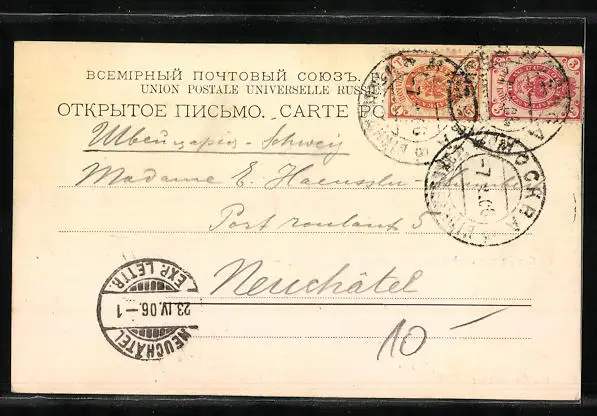 ВСЕМІРНЫЙ ПОЧТОВЫЙ СОЮЗЪ.
UNION POSTALE UNIVERSELLE RUSSIE
ОТКРЫТОЕ ПИСЬМО. CARTE PO
Швейцарія - Schweiz
Madame E. Haeussler
Port roulant 5
Neuchâtel
10 —
МОСКВА
-7
NEUCHÂTEL
23.IV.06.-1
EXP. LETTR.